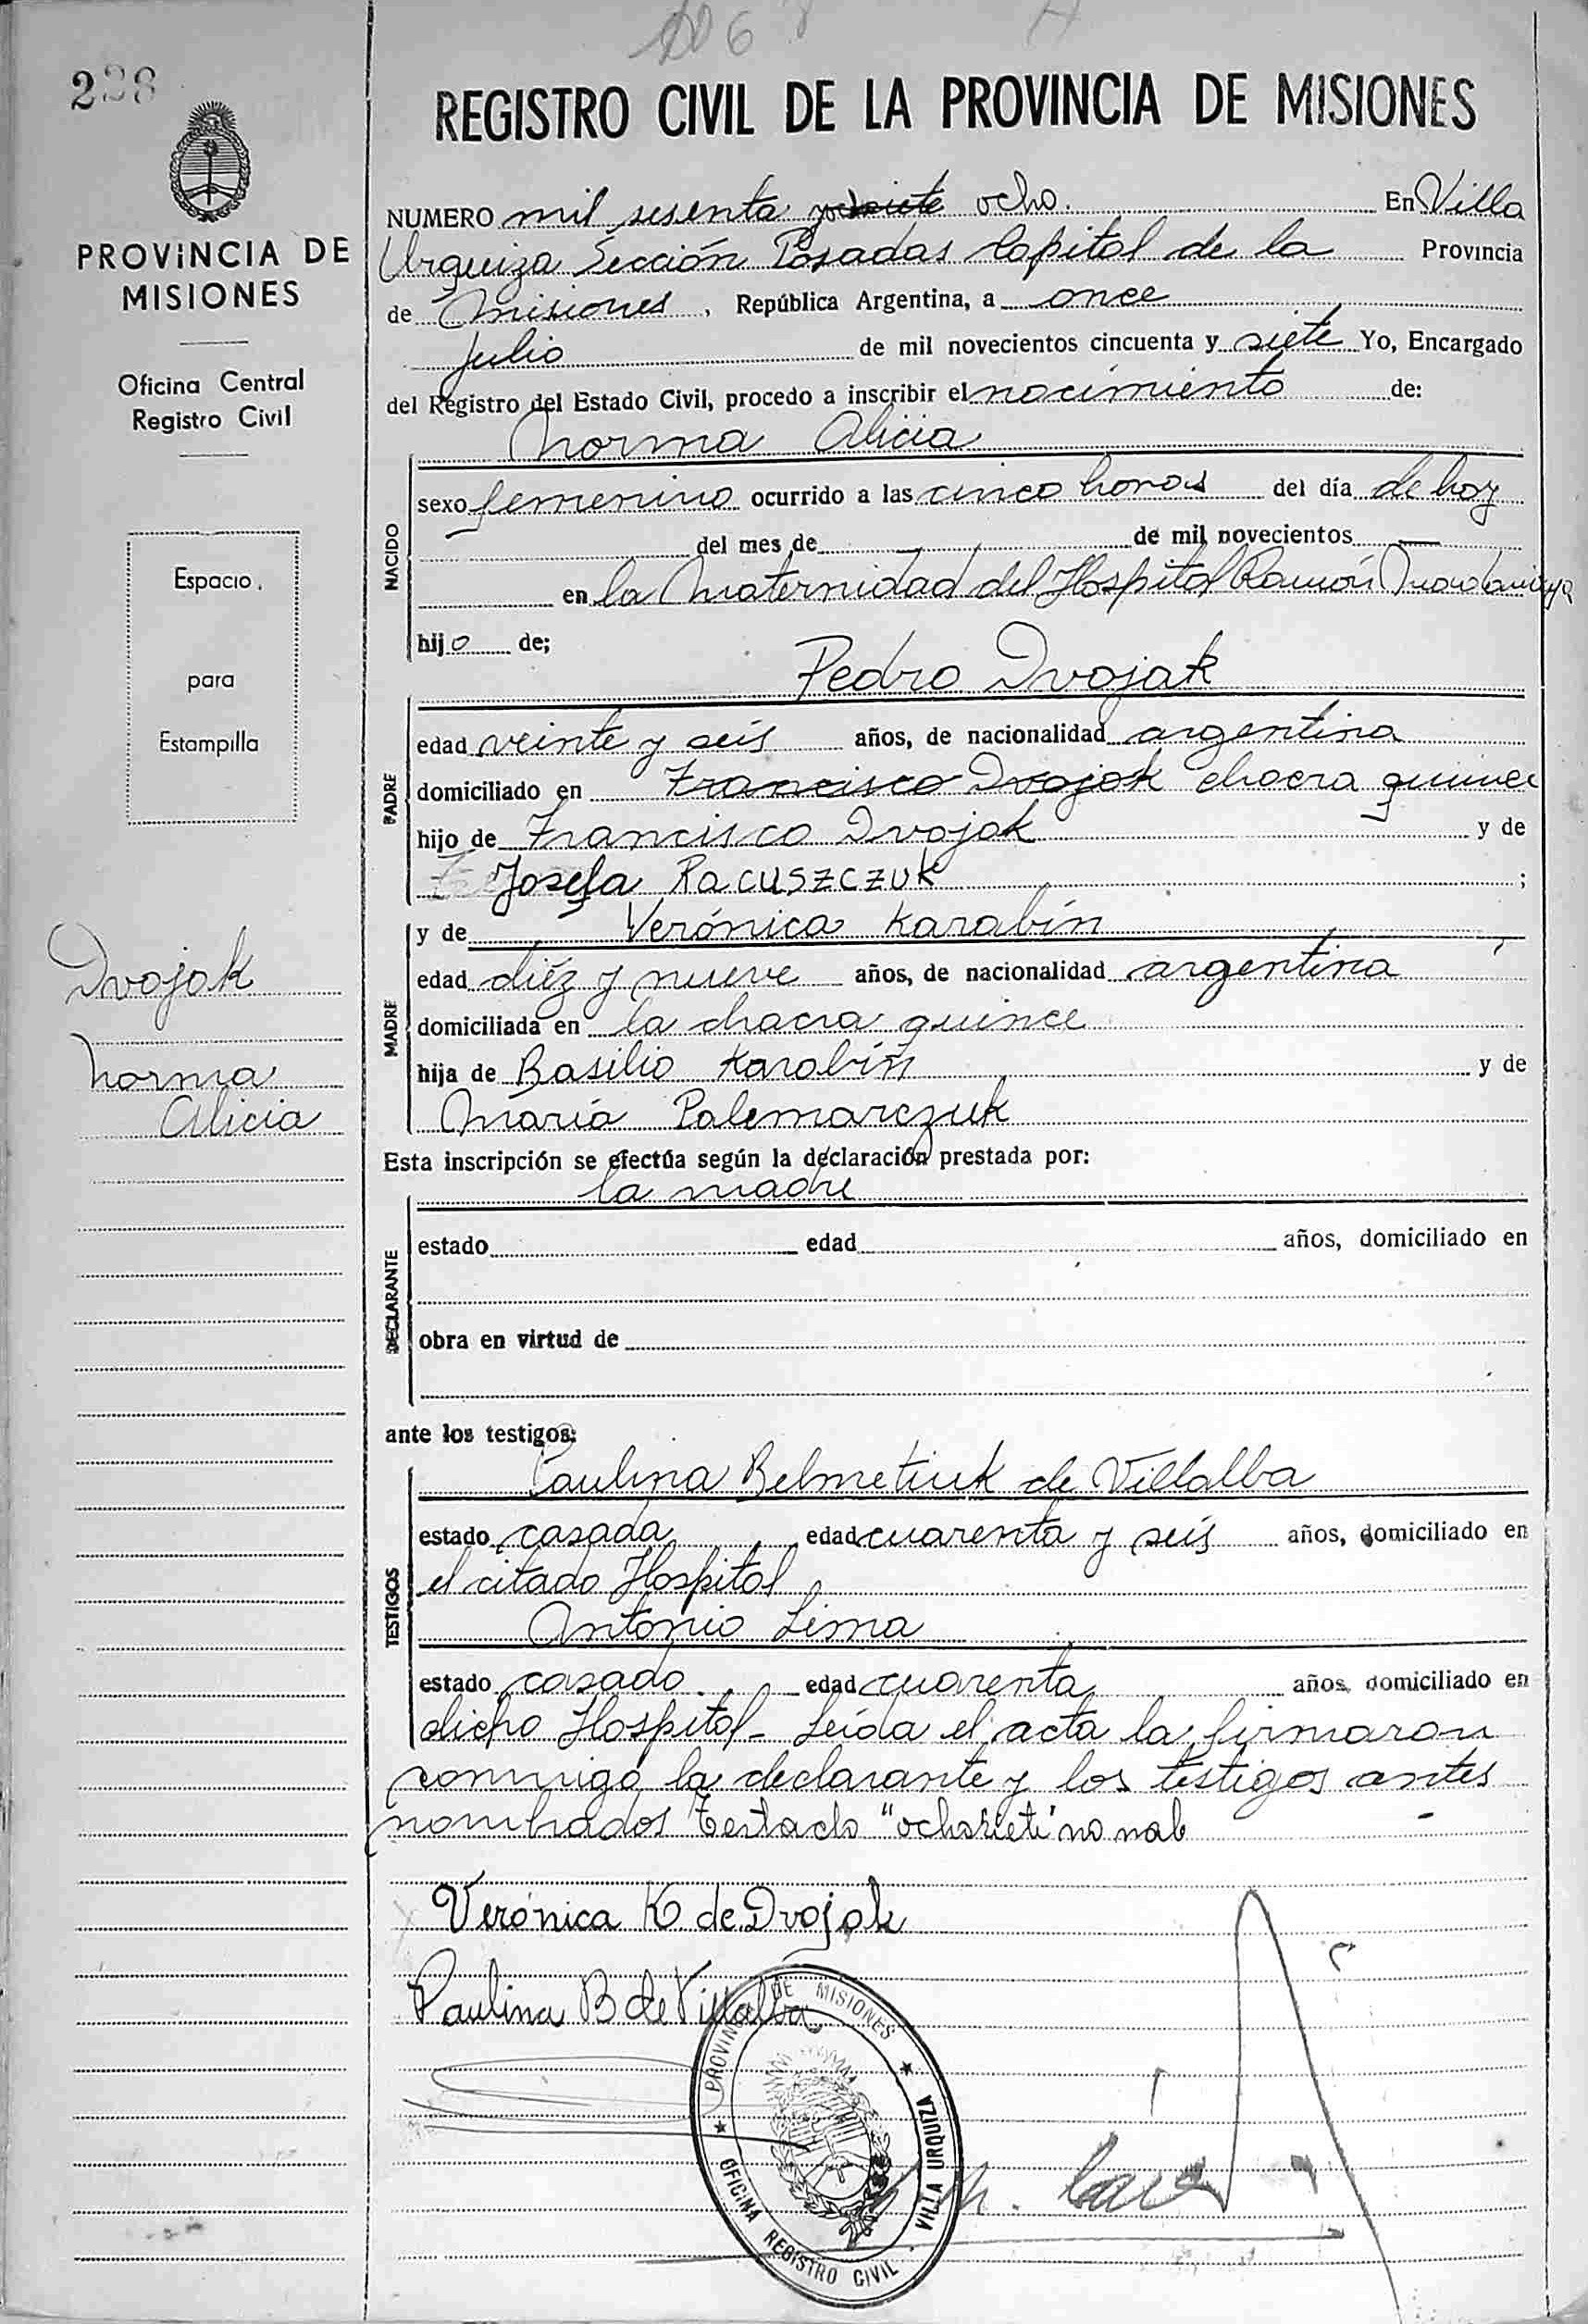 1068
238
REGISTRO CIVIL DE LA PROVINCIA DE MISIONES
PROVINCIA DE
MISIONES
Oficina Central
Registro Civil
Espacio
para
Estampilla
Dvojak
Norma
Alicia
NUMERO mil sesenta ocho. En Villa
Urquiza Sección Posadas Capital de la Provincia
de Misiones, República Argentina, a once
Julio de mil novecientos cincuenta y siete Yo, Encargado
del Registro del Estado Civil, procedo a inscribir el nacimiento de:
Norma Alicia
NACIDO
sexo femenino ocurrido a las cinco horas del día de hoy
del mes de de mil novecientos
en la Maternidad del Hospital Ramón Madariaga
hijo de;
Pedro Dvojak
PADRE
edad veinte y seis años, de nacionalidad argentina
domiciliado en Francisco Dvojak chacra quince
hijo de Francisco Dvojak y de
Josefa Racuszczuk ;
y de Verónica Karabin
MADRE
edad diéz y nueve años, de nacionalidad argentina
domiciliada en la chacra quince
hija de Basilio Karabin y de
María Palemarczuk
Esta inscripción se efectúa según la declaración prestada por:
la madre
DECLARANTE
estado edad años, domiciliado en
obra en virtud de
ante los testigos:
Paulina Belmetiuk de Villalba
TESTIGOS
estado casada edad cuarenta y seis años, domiciliado en
el citado Hospital
Antonio Lima
estado casado edad cuarenta años, domiciliado en
dicho Hospital- Leída el acta la firmaron
conmigo la declarante y los testigos antes
nombrados Testado "ochosiete" no vale
Verónica K de Dvojak
Paulina B de Villalba
PROVINCIA DE MISIONES
OFICINA REGISTRO CIVIL
VILLA URQUIZA